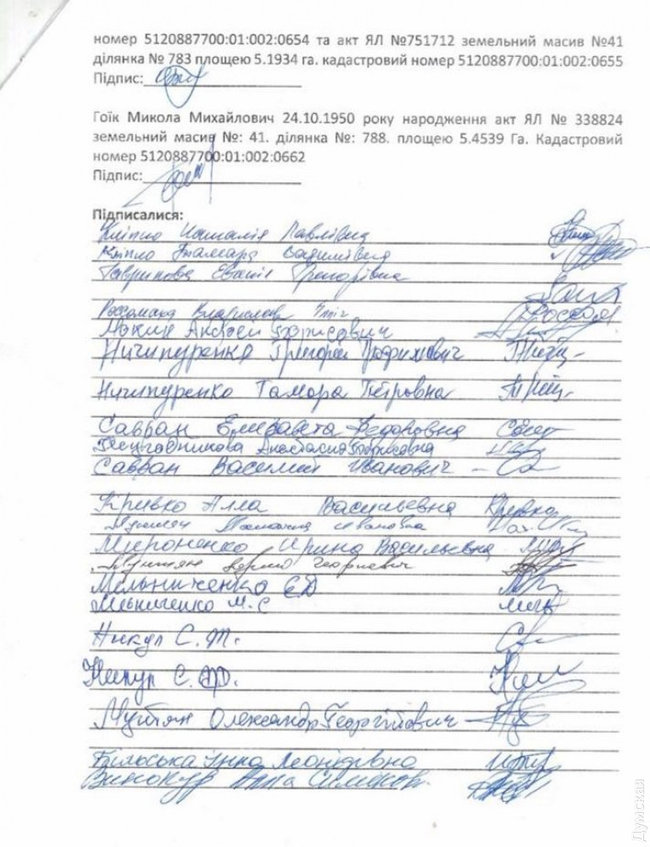 номер 5120887700:01:002:0654 та акт ЯЛ №751712 земельний масив №41
ділянка № 783 площею 5.1934 га. кадастровий номер 5120887700:01:002:0655
Підпис:
Гоїк Микола Михайлович 24.10.1950 року народження акт ЯЛ № 338824
земельний масив №: 41. ділянка №: 788. площею 5.4539 Га. Кадастровий
номер 5120887700:01:002:0662
Підпис:
Підписалися:
Наталія Павлівна
Тамара Вадимівна
Григорівна
Андрей Борисович
Ничипуренко Григорий
Ничипуренко Тамара Петровна
Савран Елизавета Федоровна
Анастасия Борисовна
Савран Василий Иванович
Кривко Алла Васильевна Кривко
Ивановна
Мироненко Ирина Васильевна
Георгиевич
Мельниченко ЄД
Мельниченко М.С
Никул С.Т.
Никул С.Ф.
Мунтян Олександр Георгійович
Більоська Інна Леонідівна
Винокур Алла
Думская